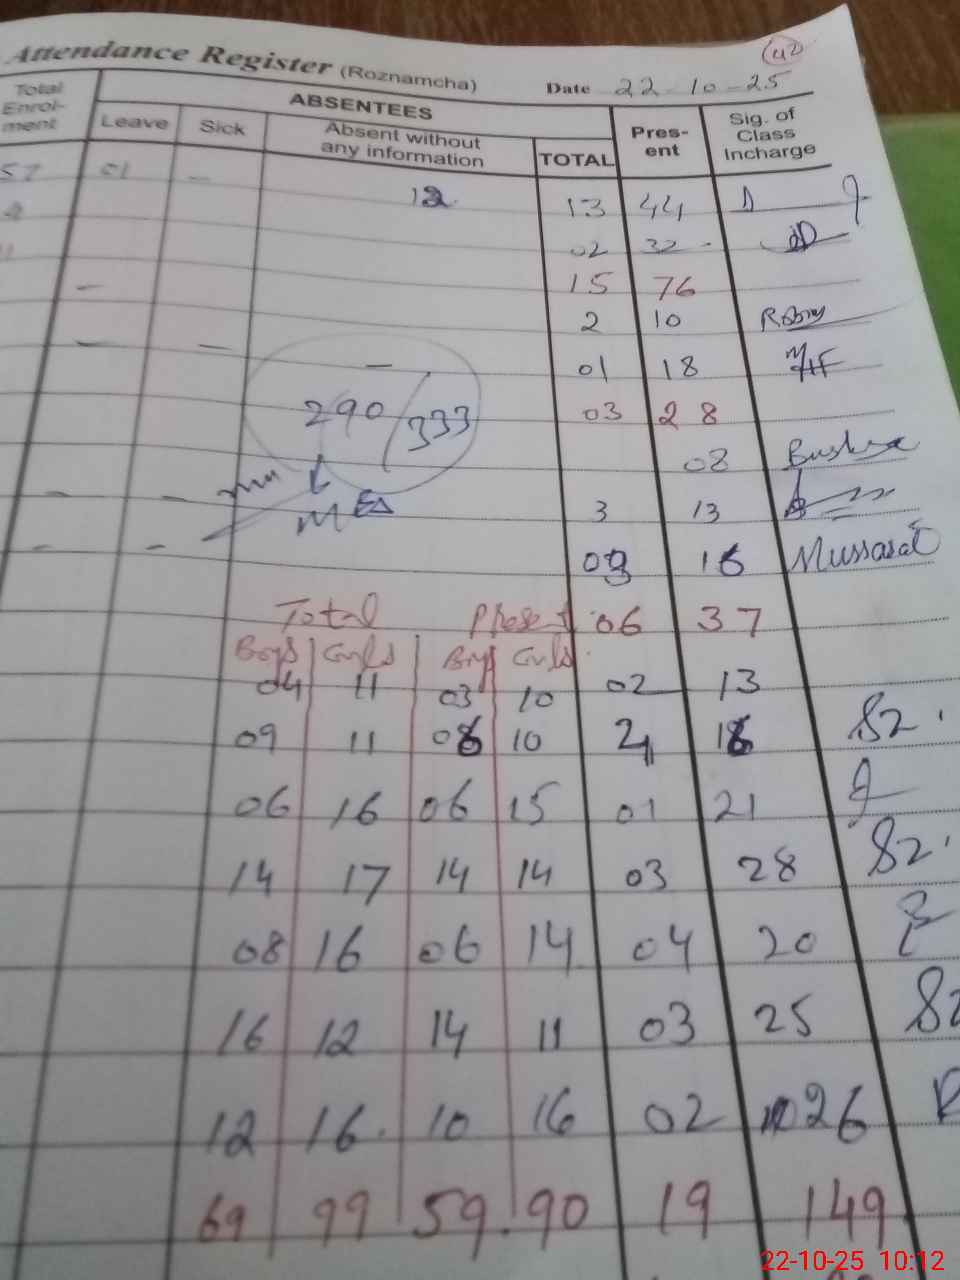 42
Attendance Register (Roznamcha) Date 22-10-25
Total Enrol-ment ABSENTEES Pres-ent Sig. of Class Incharge
Leave Sick Absent without any information TOTAL
57 01 - 12 13 44
02 32 -
- 15 76
2 10 Robby
- - - 01 18
290/333 03 28
08 Bushra
- - 3 13
- - 03 16 Mussarat
Total Present 06 37
Boys Girls Boys Girls
04 11 03 10 02 13
09 11 06 10 4 16 SZ.
06 16 06 15 01 21
14 17 14 14 03 28 SZ.
08 16 06 14 04 20
16 12 14 11 03 25 SZ
12 16. 10 16 02 26
69 99 59. 90 19 149
22-10-25 10:12